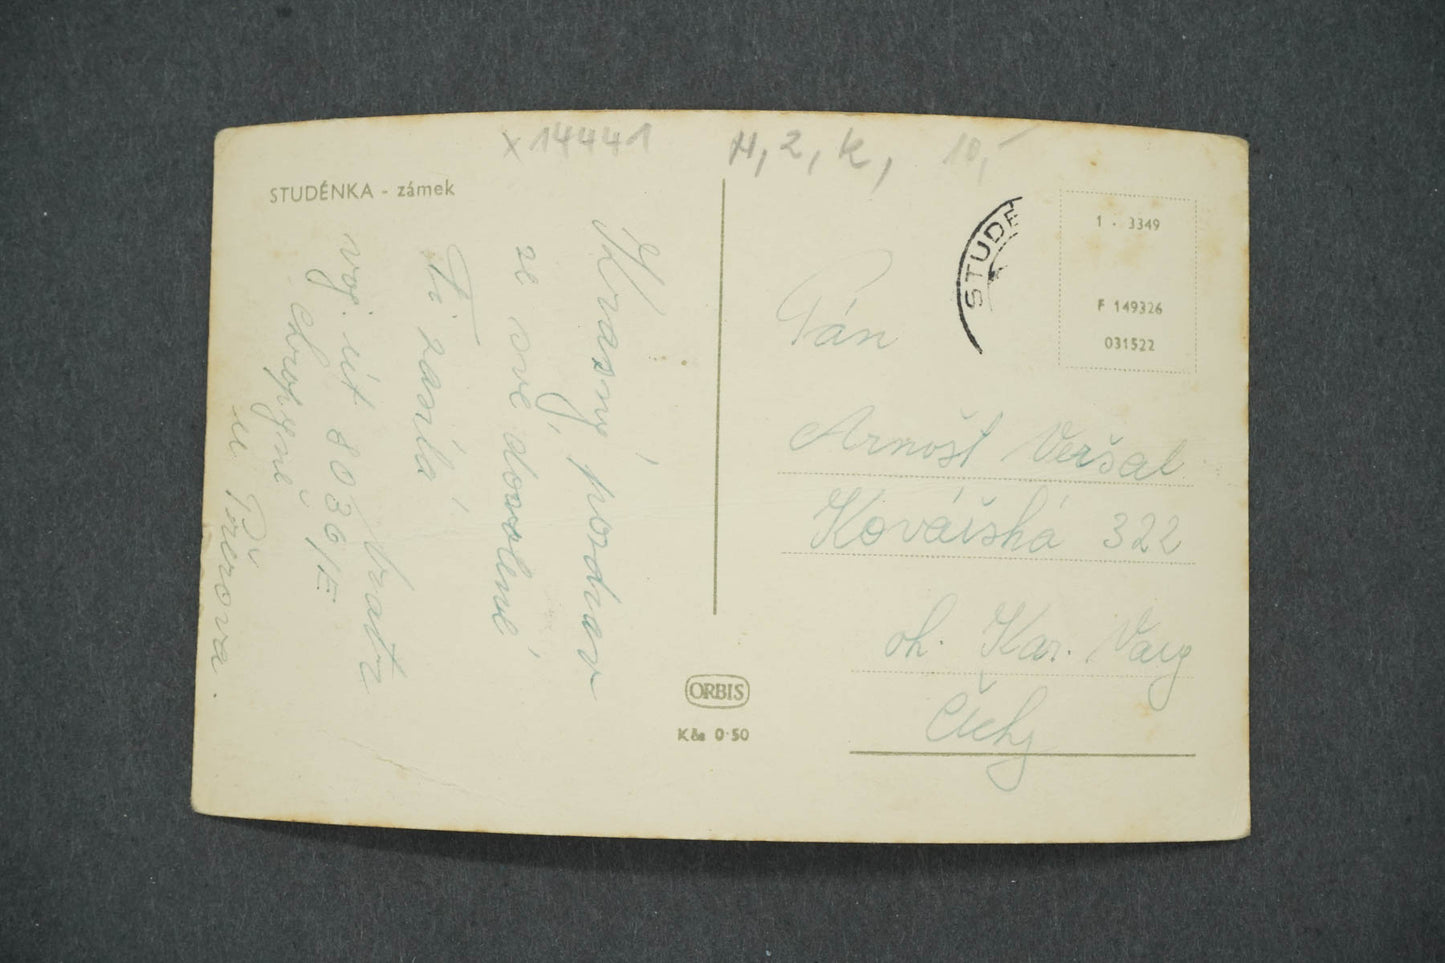 x 14441 H, 2, k, 10,-
STUDÉNKA - zámek
Krasný pozdrav
ze své dovolené,
Ti zasílá
voj. út 8036/E
Chropyně
u Přerova.
STUDÉ
1 - 3349
F 149326
031522
Pán
Arnošt Veršat
Kovářská 322
ok. Kar. Vary
Čechy
ORBIS
Kčs 0·50